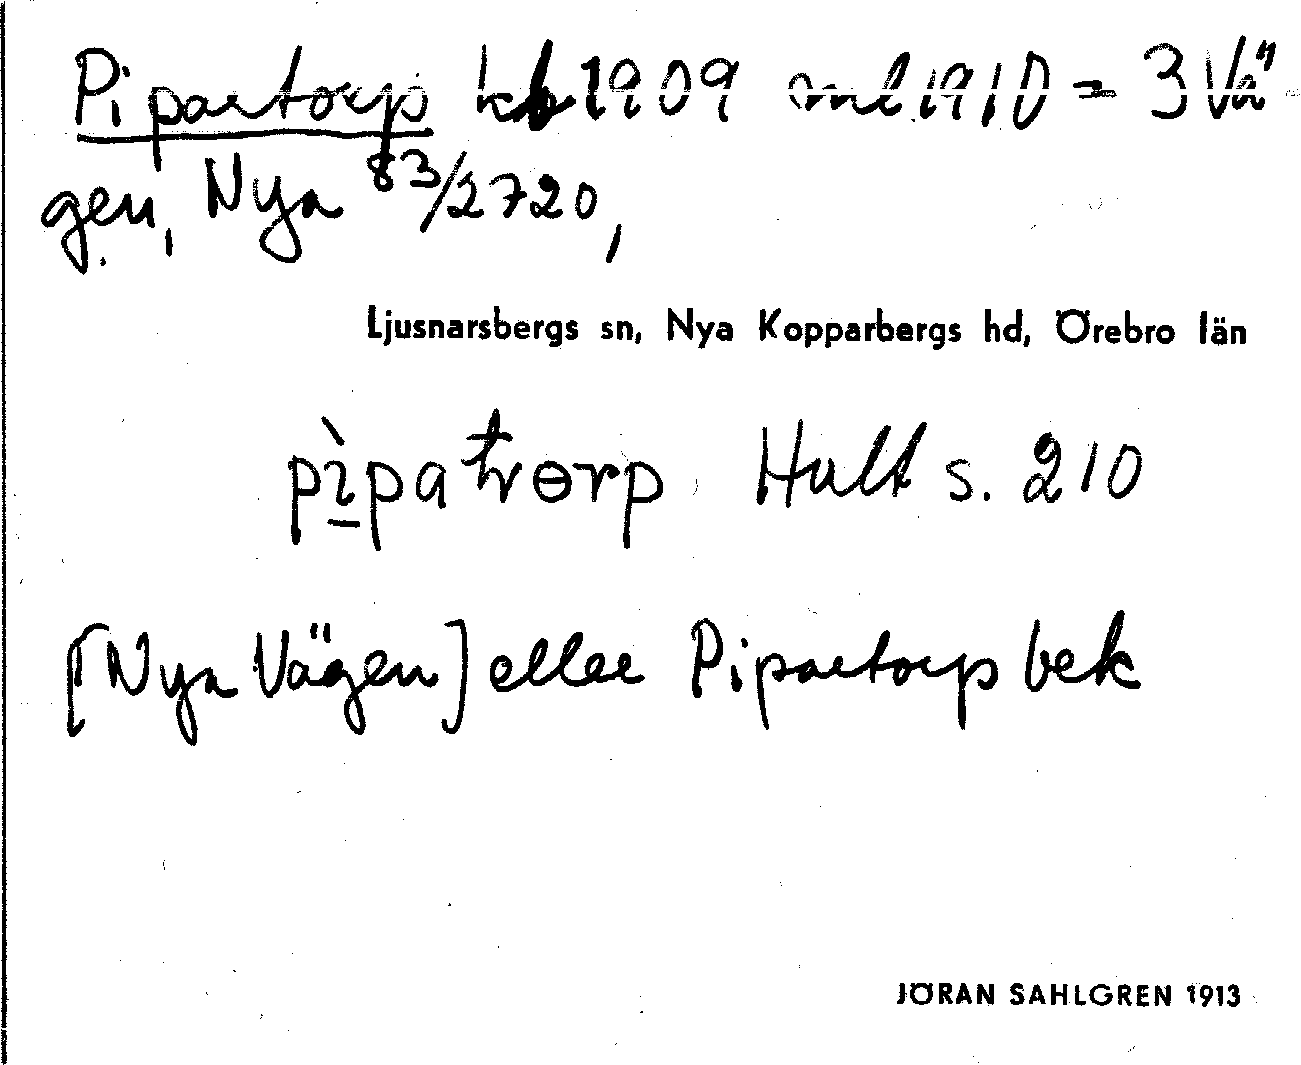 Pipartorp kb 1909 ml 1910 = 3 Vä-
gen, Nya 83/2720,
Ljusnarsbergs sn, Nya Kopparbergs hd, Örebro län
pìpatorp Hult s. 210
[Nya Vägen] eller Pipartorp bek
JÖRAN SAHLGREN 1913